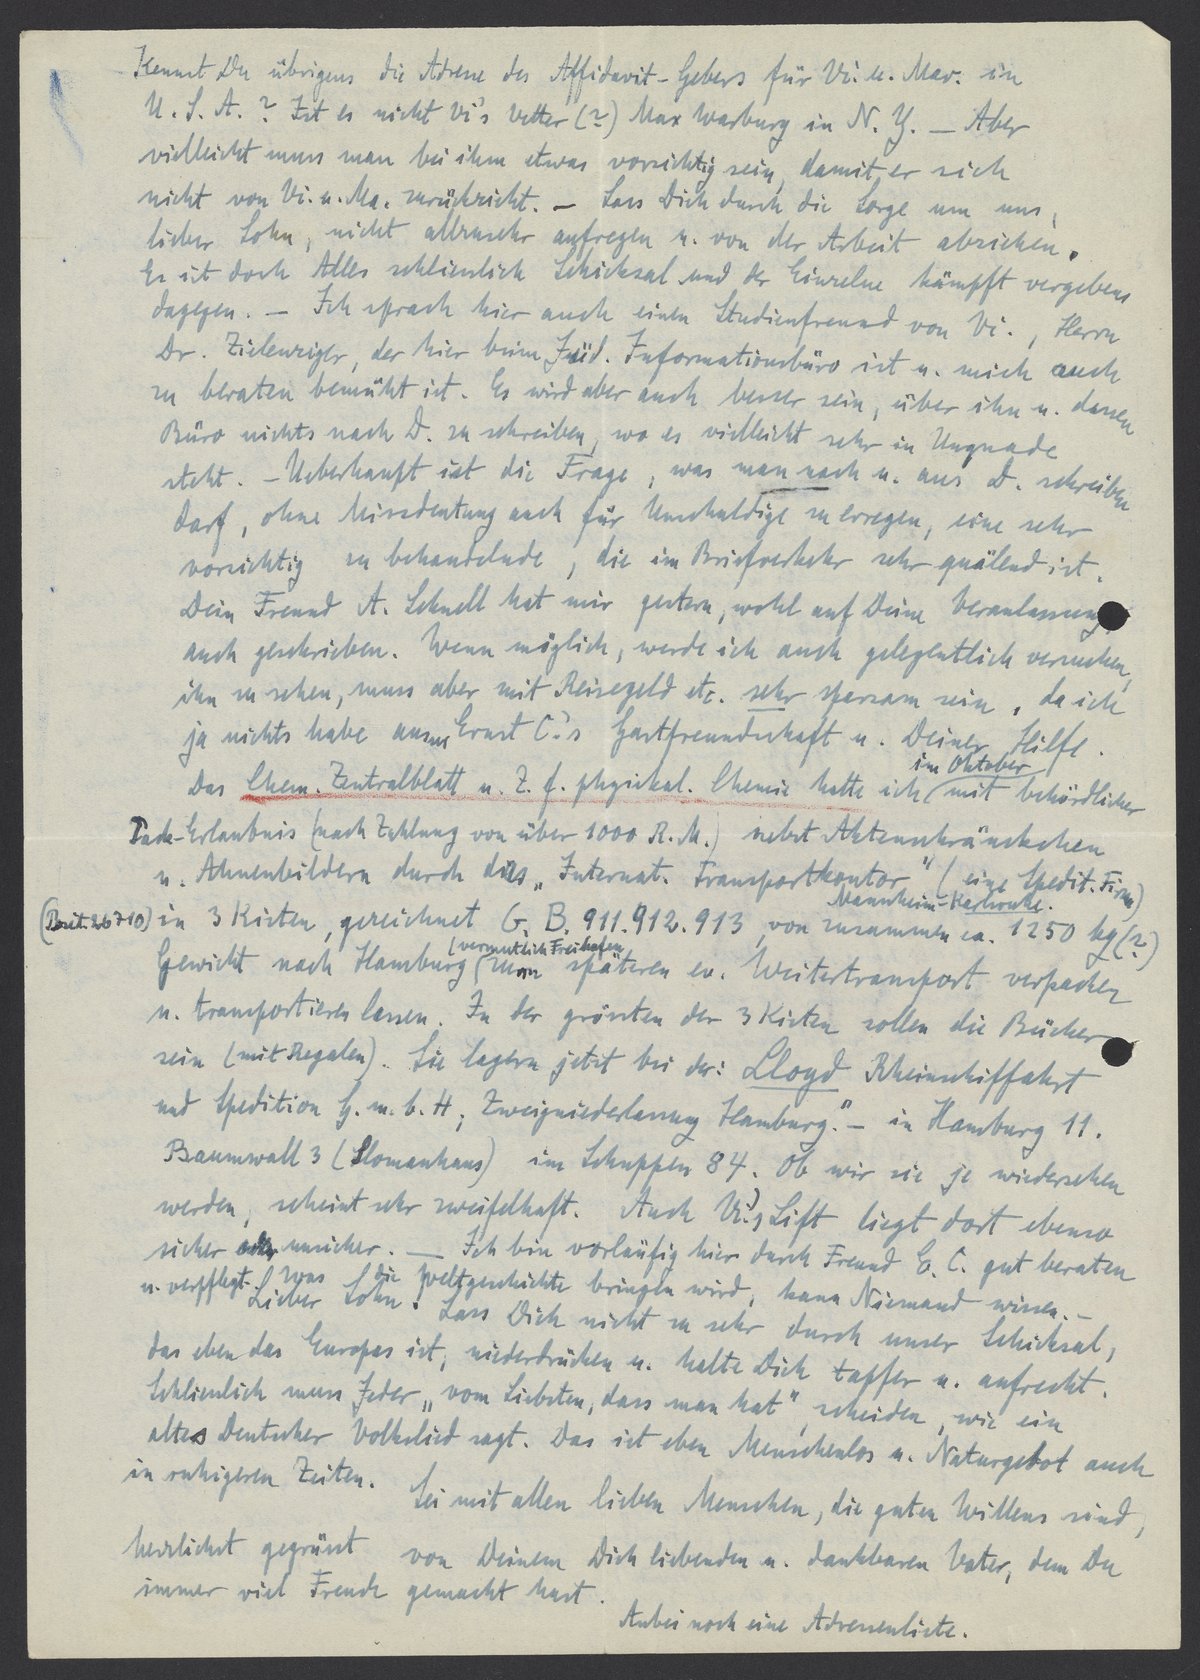 Kennst Du übrigens die Adresse des Affidavit-Gebers für Vi. u. Mar. in
U. S. A.? Ist es nicht Vi's Vetter (?) Max Warburg in N. Y. — Aber
vielleicht muss man bei ihm etwas vorsichtig sein, damit er sich
nicht von Vi. u. Ma. zurückzieht. — Lass Dich durch die Sorge um uns,
lieber Sohn, nicht allzusehr aufregen u. von der Arbeit abziehen.
Es ist doch Alles schliesslich Schicksal und der Einzelne kämpft vergebens
dagegen. — Ich sprach hier auch einen Studienfreund von Vi., Herrn
Dr. Zielenziger, der hier beim Jüd. Informationsbüro ist u. mich auch
zu beraten bemüht ist. Es wird aber auch besser sein, über ihn u. dessen
Büro nichts nach D. zu schreiben, wo es vielleicht sehr in Ungnade
steht. — Ueberhaupt ist die Frage, was man nach u. aus D. schreiben
darf, ohne Missdeutung auch für Unschuldige zu erregen, eine sehr
vorsichtig zu behandelnde, die im Briefverkehr sehr quälend ist.
Dein Freund A. Schnell hat mir gestern, wohl auf Deine Veranlassung,
auch geschrieben. Wenn möglich, werde ich auch gelegentlich versuchen,
ihn zu sehen, muss aber mit Reisegeld etc. sehr sparsam sein, da ich
ja nichts habe ausser Ernst C.'s Gastfreundschaft u. Deiner Hilfe.
im Oktober
Das Chem. Zentralblatt u. Z. f. physikal. Chemie hatte ich mit behördlicher
Pack-Erlaubnis (nach Zahlung von über 1000 R.M.) nebst Aktenschränkchen
u. Ahnenbildern durch das "Internat. Transportkontor" (eine Spedit. Firm)
Mannheim-Karlsruhe.
(Posit. 26710) in 3 Kisten, gezeichnet G. B. 911. 912. 913, von zusammen ca. 1250 kg (?)
(vermutlich Freihafen
Gewicht nach Hamburg (zum späteren ev. Weitertransport verpacken
u. transportieren lassen. In der grössten der 3 Kisten sollen die Bücher
sein (mit Regalen). Sie lagern jetzt bei der: Lloyd Rheinschiffahrt
und Spedition G. m. b. H., Zweigniederlassung Hamburg." — in Hamburg 11.
Baumwall 3 (Slomanhaus) im Schuppen 84. Ob wir sie je wiedersehen
werden, scheint sehr zweifelhaft. Auch Vi.'s Lift liegt dort ebenso
sicher oder unsicher. — Ich bin vorläufig hier durch Freund E. C. gut beraten
u. verpflegt. Was die Weltgeschichte bringen wird, kann Niemand wissen. —
Lieber Sohn! Lass Dich nicht zu sehr durch unser Schicksal,
das eben das Europas ist, niederdrücken u. halte Dich tapfer u. aufrecht.
Schliesslich muss Jeder "vom Liebsten, dass man hat", scheiden, wie ein
altes Deutscher Volkslied sagt. Das ist eben Menschenlos u. Naturgebot auch
in ruhigeren Zeiten.
Sei mit allen lieben Menschen, die guten Willens sind,
herzlichst gegrüsst von Deinem Dich liebenden u. dankbaren Vater, dem Du
immer viel Freude gemacht hast.
Anbei noch eine Adressenliste.